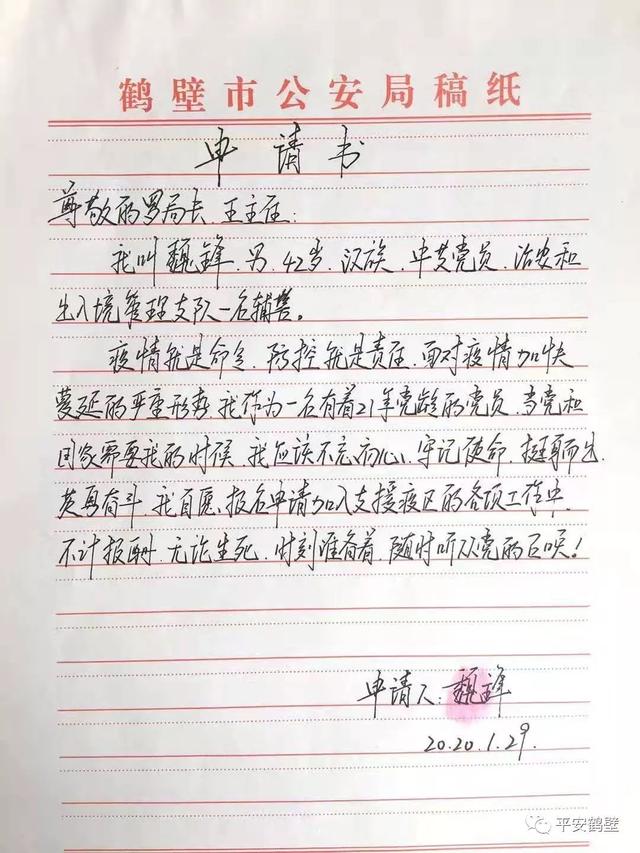 鹤壁市公安局稿纸
申请书
尊敬的罗局长、王主任：
我叫魏锋、男、42岁、汉族、中共党员、治安和
出入境管理支队一名辅警。
疫情就是命令、防控就是责任、面对疫情加快
蔓延的严重形势、我作为一名有着21年党龄的党员、当党和
国家需要我的时候、我应该不忘初心、牢记使命、挺身而出、
英勇奋斗、我自愿报名申请加入支援疫区的各项工作中、
不计报酬、无论生死、时刻准备着、随时听从党的召唤！
申请人：魏锋
2020.1.29.
平安鹤壁